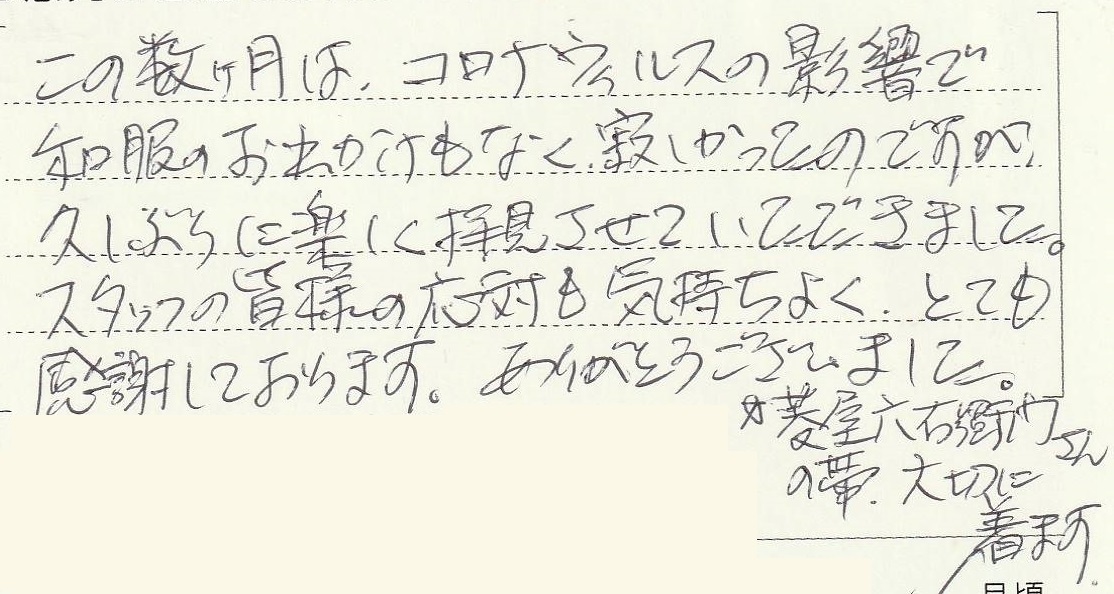 この数ヶ月は、コロナウィルスの影響で
和服のお出かけもなく、寂しかったのですが、
久しぶりに楽しく拝見させていただきました。
スタッフの皆様の応対も気持ちよく、とても
感謝しております。ありがとうございました。
*菱屋六右衛門さん
の帯、大切に
着ます
月頃